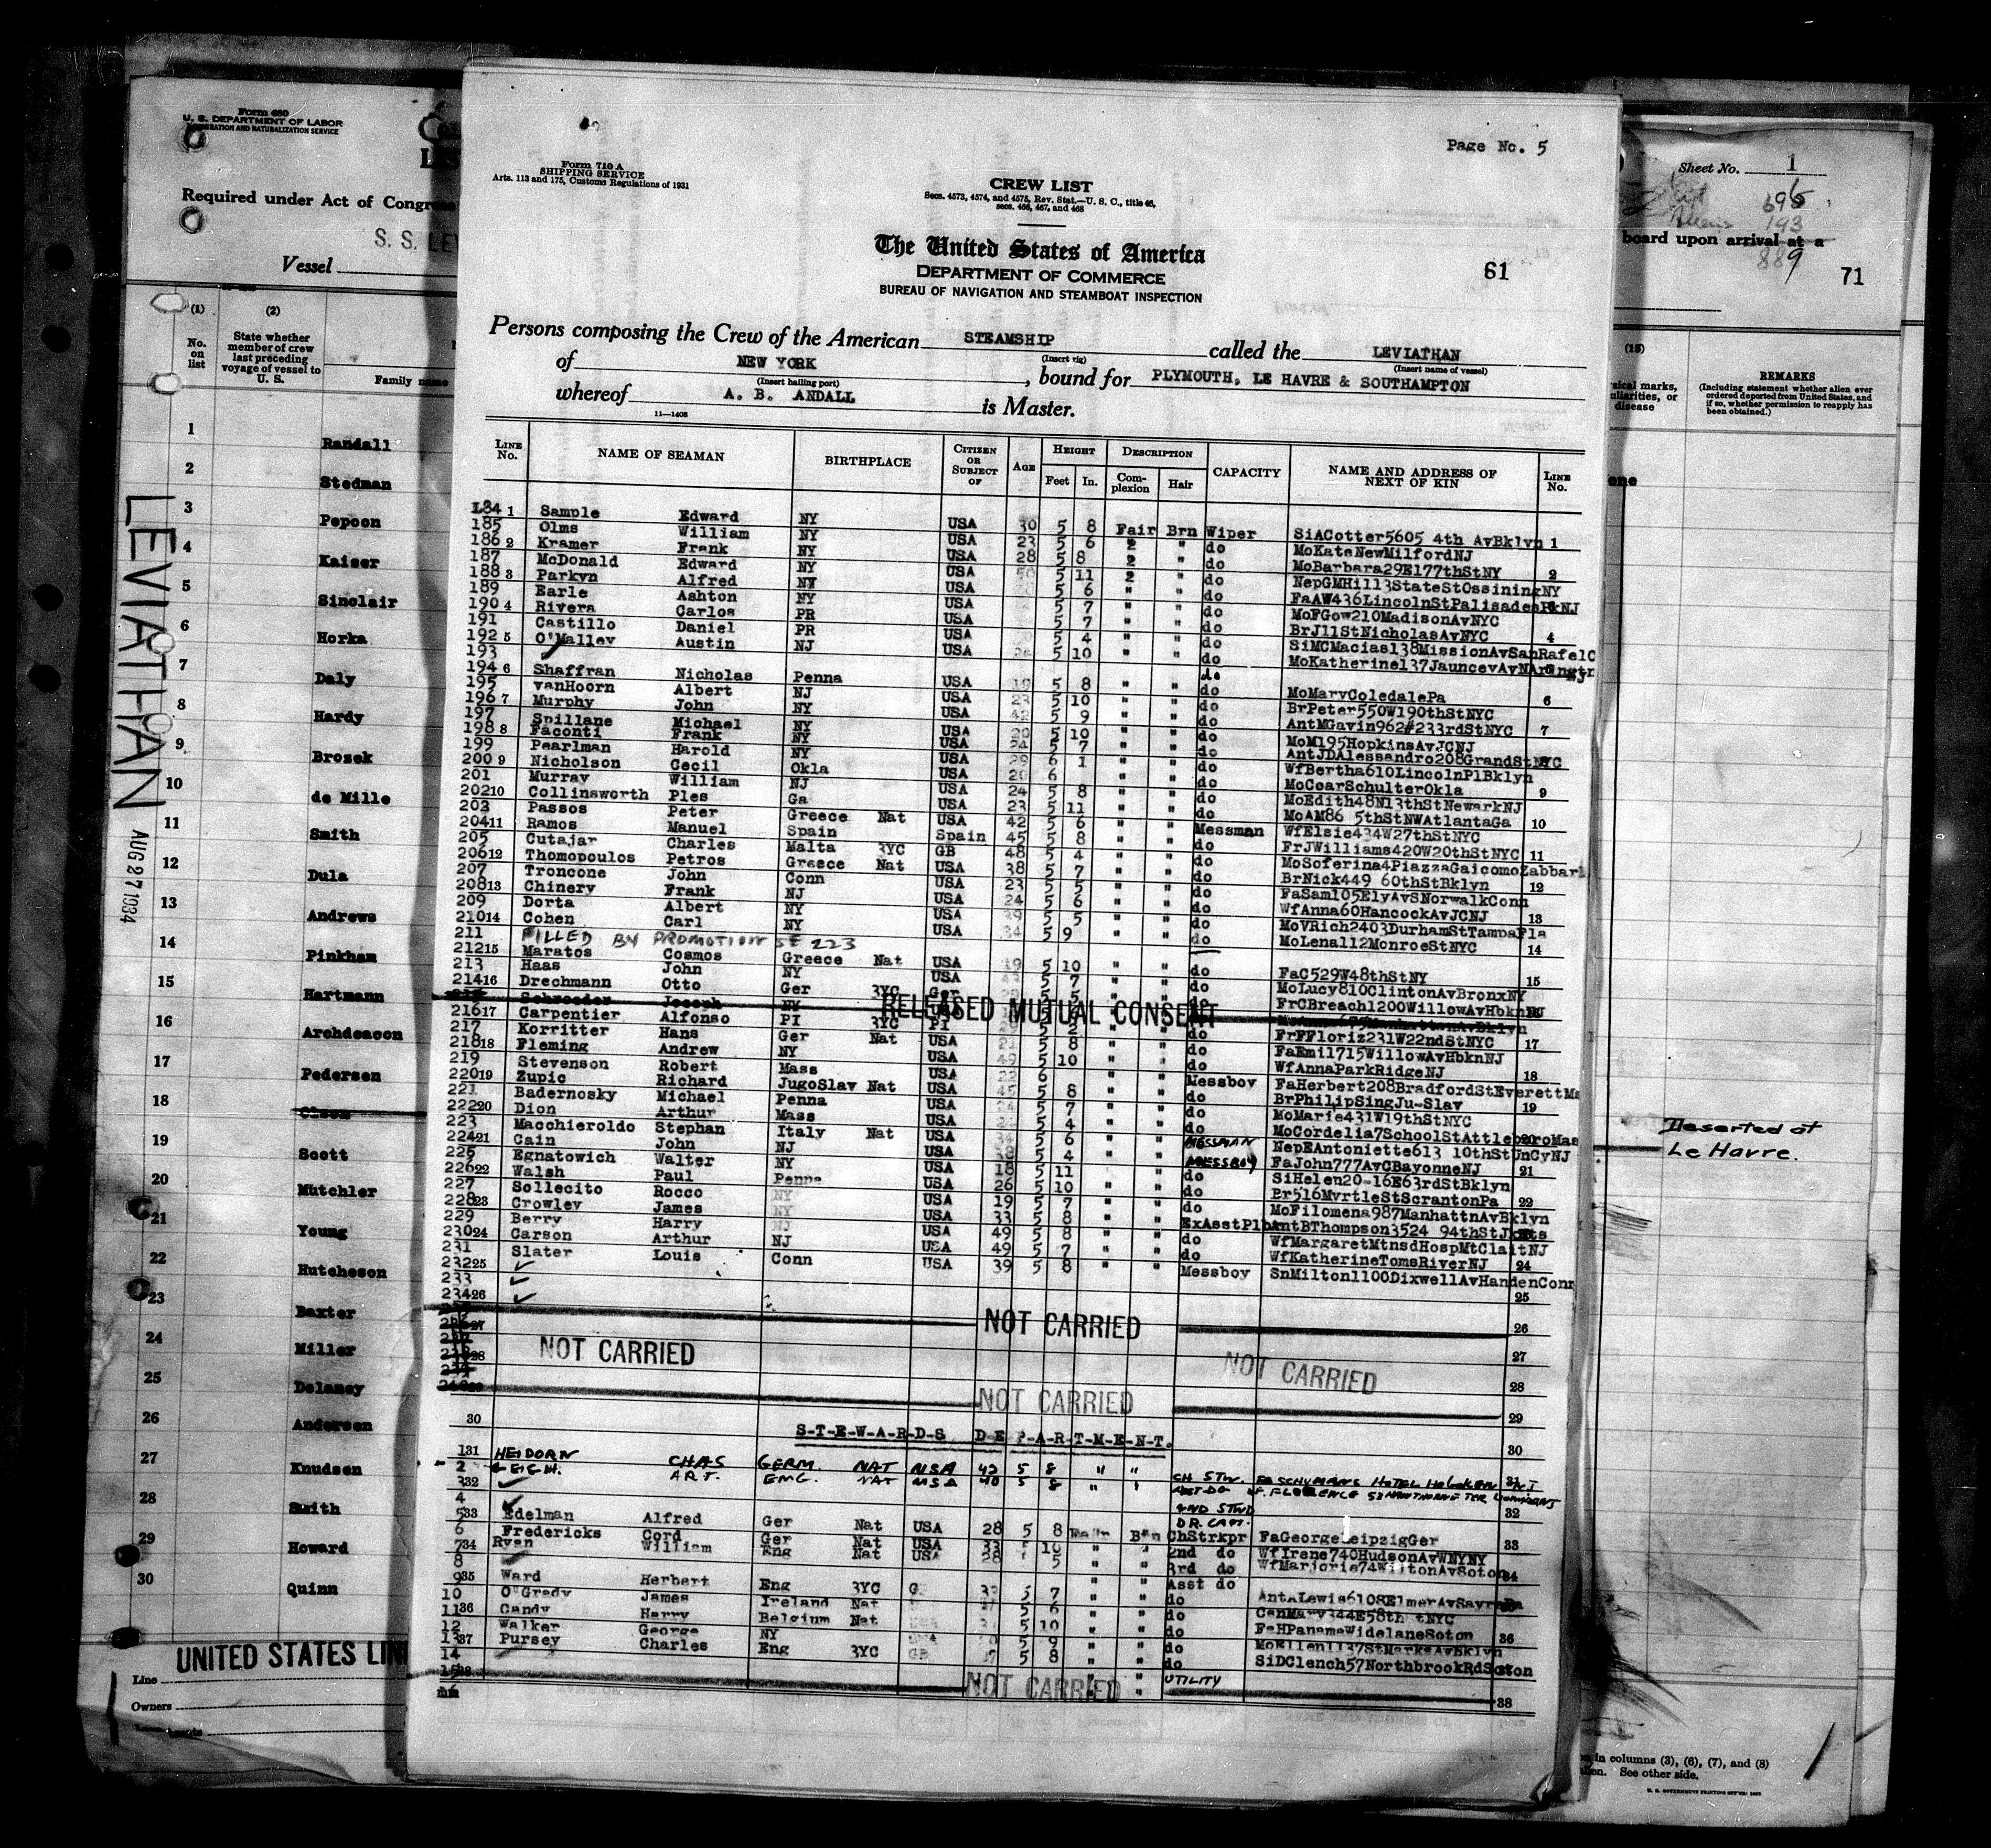 Form 680
U. S. DEPARTMENT OF LABOR
IMMIGRATION AND NATURALIZATION SERVICE
Required under Act of Congre
S. S. LEV
Vessel
(1) (2)
No. on list
State whether member of crew last preceding voyage of vessel to U. S.
Family name
1 Randall
2 Stedman
3 Pepoon
4 Kaiser
5 Sinclair
6 Horka
7 Daly
8 Hardy
9 Brosek
10 de Mille
11 Smith
12 Dula
13 Andrews
14 Pinkham
15 Hartmann
16 Archdeacon
17 Pedersen
18 Olsen
19 Scott
20 Mutchler
21 Young
22 Hutcheson
23 Baxter
24 Miller
25 Delaney
26 Andersen
27 Knudsen
28 Smith
29 Howard
30 Quinn
LEVIATHAN AUG 27 1934
UNITED STATES LIN
Line
Owners
Page No. 5
Form 710 A
SHIPPING SERVICE
Arts. 113 and 175, Customs Regulations of 1931
CREW LIST
Secs. 4573, 4574, and 4575, Rev. Stat.—U. S. C., title 46,
secs. 466, 467, and 468
The United States of America
DEPARTMENT OF COMMERCE
BUREAU OF NAVIGATION AND STEAMBOAT INSPECTION
61
Persons composing the Crew of the American STEAMSHIP called the LEVIATHAN
(Insert rig) (Insert name of vessel)
of NEW YORK, bound for PLYMOUTH, LE HAVRE & SOUTHAMPTON
(Insert hailing port)
whereof A. B. ANDALL is Master.
11—1408
LINE No. NAME OF SEAMAN BIRTHPLACE CITIZEN OR SUBJECT OF AGE HEIGHT DESCRIPTION CAPACITY NAME AND ADDRESS OF NEXT OF KIN LINE No.
Feet In. Complexion Hair
184 1 Sample Edward NY USA 30 5 8 Fair Brn Wiper SiACotter5605 4th AvBklyn 1
185 Olms William NY USA 23 5 6 " do MoKateNewMilfordNJ
186 2 Kramer Frank NY USA 28 5 8 " do MoBarbara29E177thStNY 2
187 McDonald Edward NY USA 5 11 " do NepGMHill13StateStOssiningNY
188 3 Parkyn Alfred NY USA 5 6 " " do FaAW436LincolnStPalisadesPkNJ
189 Earle Ashton NY USA 5 7 " " do MoFGow210MadisonAvNYC
190 4 Rivera Carlos PR USA 5 7 " " do BrJ11StNicholasAvNYC 4
191 Castillo Daniel PR USA 5 4 " " do SiMCMacias138MissionAvSanRafelC
192 5 O'Malley Austin NJ USA 5 10 " " do MoKatherine137JaunceyAvNArlngtn NJ
193 do
194 6 Shaffran Nicholas Penna USA 19 5 8 " " do MoMaryColedalePa 6
195 vanHoorn Albert NJ USA 23 5 10 " " do BrPeter550W190thStNYC
196 7 Murphy John NY USA 42 5 9 " " do AntMGavin962#233rdStNYC 7
197 Spillane Michael NY USA 20 5 10 " " do MoM195HopkinsAvJCNJ
198 8 Faconti Frank NY USA 24 5 7 " " do AntJDAlessandro208GrandStNYC
199 Pearlman Harold NY USA 29 6 1 " " do WfBertha610LincolnPlBklyn
200 9 Nicholson Cecil Okla USA 20 6 " " do MoCoarSchulterOkla 9
201 Murray William NJ USA 24 5 8 " " do MoEdith48N13thStNewarkNJ
202 10 Collinsworth Ples Ga USA 23 5 11 " " do MoAM86 5thStNWAtlantaGa 10
203 Passos Peter Greece Nat USA 42 5 6 " " Messman WfElsie434W27thStNYC
204 11 Ramos Manuel Spain Spain 45 5 8 " " do FrJWilliams420W20thStNYC 11
205 Cutajar Charles Malta 3YC GB 48 5 4 " " do MoSoferina4PiazzaGaicomoZabbari
206 12 Thomopoulos Petros Greece Nat USA 38 5 7 " " do BrNick449 60thStBklyn 12
207 Troncone John Conn USA 23 5 5 " " do FaSam105ElyAvSNorwalkConn
208 13 Chinery Frank NJ USA 24 5 6 " " do WfAnna60HancockAvJCNJ 13
209 Dorta Albert NY USA 39 5 5 " " do MoVRich2403DurhamStTampaFla
210 14 Cohen Carl NY USA 34 5 9 " " do MoLena112MonroeStNYC 14
211 FILLED BY PROMOTION SE 223
212 15 Maratos Cosmos Greece Nat USA 19 5 10 " " do FaC529W48thStNY 15
213 Haas John NY USA 5 7 " " do MoLucy810ClintonAvBronxNY
214 16 Drechmann Otto Ger 3YC Ger 5 5 " " do FrCBreach1200WillowAvHbknNJ
215 Schroeder Joseph NY RELEASED MUTUAL CONSENT
216 17 Carpentier Alfonso PI 3YC PI 5 2 " " do FrFFloriz231W22ndStNYC 17
217 Korritter Hans Ger Nat USA 5 8 " " do FaEmil715WillowAvHbknNJ
218 18 Fleming Andrew NY USA 49 5 10 " " do WfAnnaParkRidgeNJ 18
219 Stevenson Robert Mass USA 22 6 " " Messboy FaHerbert208BradfordStEverettMs
220 19 Zupic Richard JugoSlav Nat USA 45 5 8 " " do BrPhilipSingJu-Slav 19
221 Badernosky Michael Penna USA 5 7 " " do MoMarie431W19thStNYC
222 20 Dion Arthur Mass USA 5 4 " " do MoCordelia7SchoolStAttleboroMas
223 Macchieroldo Stephan Italy Nat USA 5 6 " " MESSMAN NepEAntoniette613 10thStUnCyNJ
224 21 Cain John NJ USA 38 5 4 " " MESSBOY FaJohn777AvCBayonneNJ 21
225 Egnatowich Walter NY USA 18 5 11 " " do SiHelen20-16E63rdStBklyn
226 22 Walsh Paul Penna USA 26 5 10 " " do Br516MyrtleStScrantonPa 22
227 Sollecito Rocco NY USA 19 5 7 " " do MoFilomena987ManhattnAvBklyn
228 23 Crowley James NY USA 33 5 8 " " ExAsstPlb AntBThompson3524 94thStJkHts
229 Berry Harry NJ USA 49 5 8 " " do WfMargaretMtnsdHospMtClaitNJ
230 24 Carson Arthur NJ USA 49 5 7 " " do WfKatherineTomsRiverNJ 24
231 Slater Louis Conn USA 39 5 8 " " Messboy SnMilton1100DixwellAvHamdenConn
232 25 25
233
234 26 26
NOT CARRIED
27
NOT CARRIED NOT CARRIED
28
NOT CARRIED
29
30 S-T-E-W-A-R-D-S D-E P-A-R-T-M-E-N-T. 30
1 31 HEIDORN CHAS GERM. NAT USA 43 5 8 " " CH STW. SCHUMANS HOTEL HOBOKEN NJ
2 LEIGH. ART. ENG. NAT USA 40 5 8 " " FLORENCE
3 32 2ND STWD 32
4 DR. CAPT.
5 33 Edelman Alfred Ger Nat USA 28 5 8 Fair Brn ChStrkpr FaGeorgeLeipzigGer 33
6 Fredericks Cord Ger Nat USA 33 5 10 " " 2nd do WfIrene740HudsonAvWNYNY
7 34 Ryan William Eng Nat USA 28 5 " " 3rd do WfMarjorie74WiltonAvSoton
8 Asst do
9 35 Ward Herbert Eng 3YC 5 7 " " do AntALewis610SElmerAvSayrePa
10 O'Grady James Ireland Nat 5 6 " " do CenMary344E58th tNYC
11 36 Candy Harry Belgium Nat 5 10 " " do FaHPanamaWidelaneSoton 36
12 Walker George NY 5 9 " " do MoEllen1137StMarksAvBklyn
13 37 Pursey Charles Eng 3YC 5 8 " " do SiDClench57NorthbrookRdSoton
14 UTILITY
15 38 NOT CARRIED 38
Sheet No. 1
193
889
board upon arrival at a
71
(15)
sical marks, uliarities, or disease
REMARKS
(Including statement whether alien ever ordered deported from United States, and if so, whether permission to reapply has been obtained.)
Deserted at
Le Havre.
in columns (3), (6), (7), and (8)
See other side.